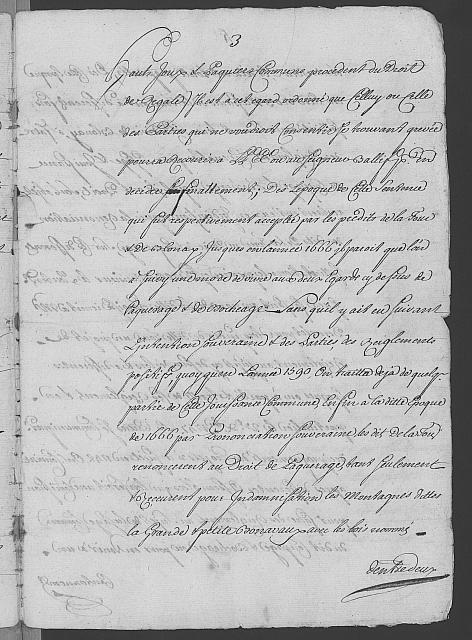 3
hauts Joux & Paquiers Communs procedent du Droit
de Regale, Il est à cet egard ordonné que Celluy ou Celle
des Parties qui ne voudroit Consentir se trouvant grevée
pourra Recourir à LL EE ou au Seigneur Baillif pr En
decider finallement; Dès l'epoque de Cette Sentence
qui fut respectivement acceptée par les prédits de la Tour
& de Blonay Jusques en l'année 1666 il paroit que l'on
a suivy une mode de vivre aux deux Egards cy dessus de
Paquerage & de Bocheage Sans qu'il y ait eu suivant
L'intention Souveraine & des Parties des Reiglements
positifs, quoy que en L'année 1590 On traitta dejà de quelq
partie de Cette Jouissance Commune, Enfin à la ditte Epoque
de 1666 par Prononciation Souveraine, les dit de la Tour
renoncerent au Droit de Paquerage tant seulement
& Reçeurent pour Indemnisation les Montagnes dittes
la Grande & petite Bonavaux avec les bois nommé
d'entredeux